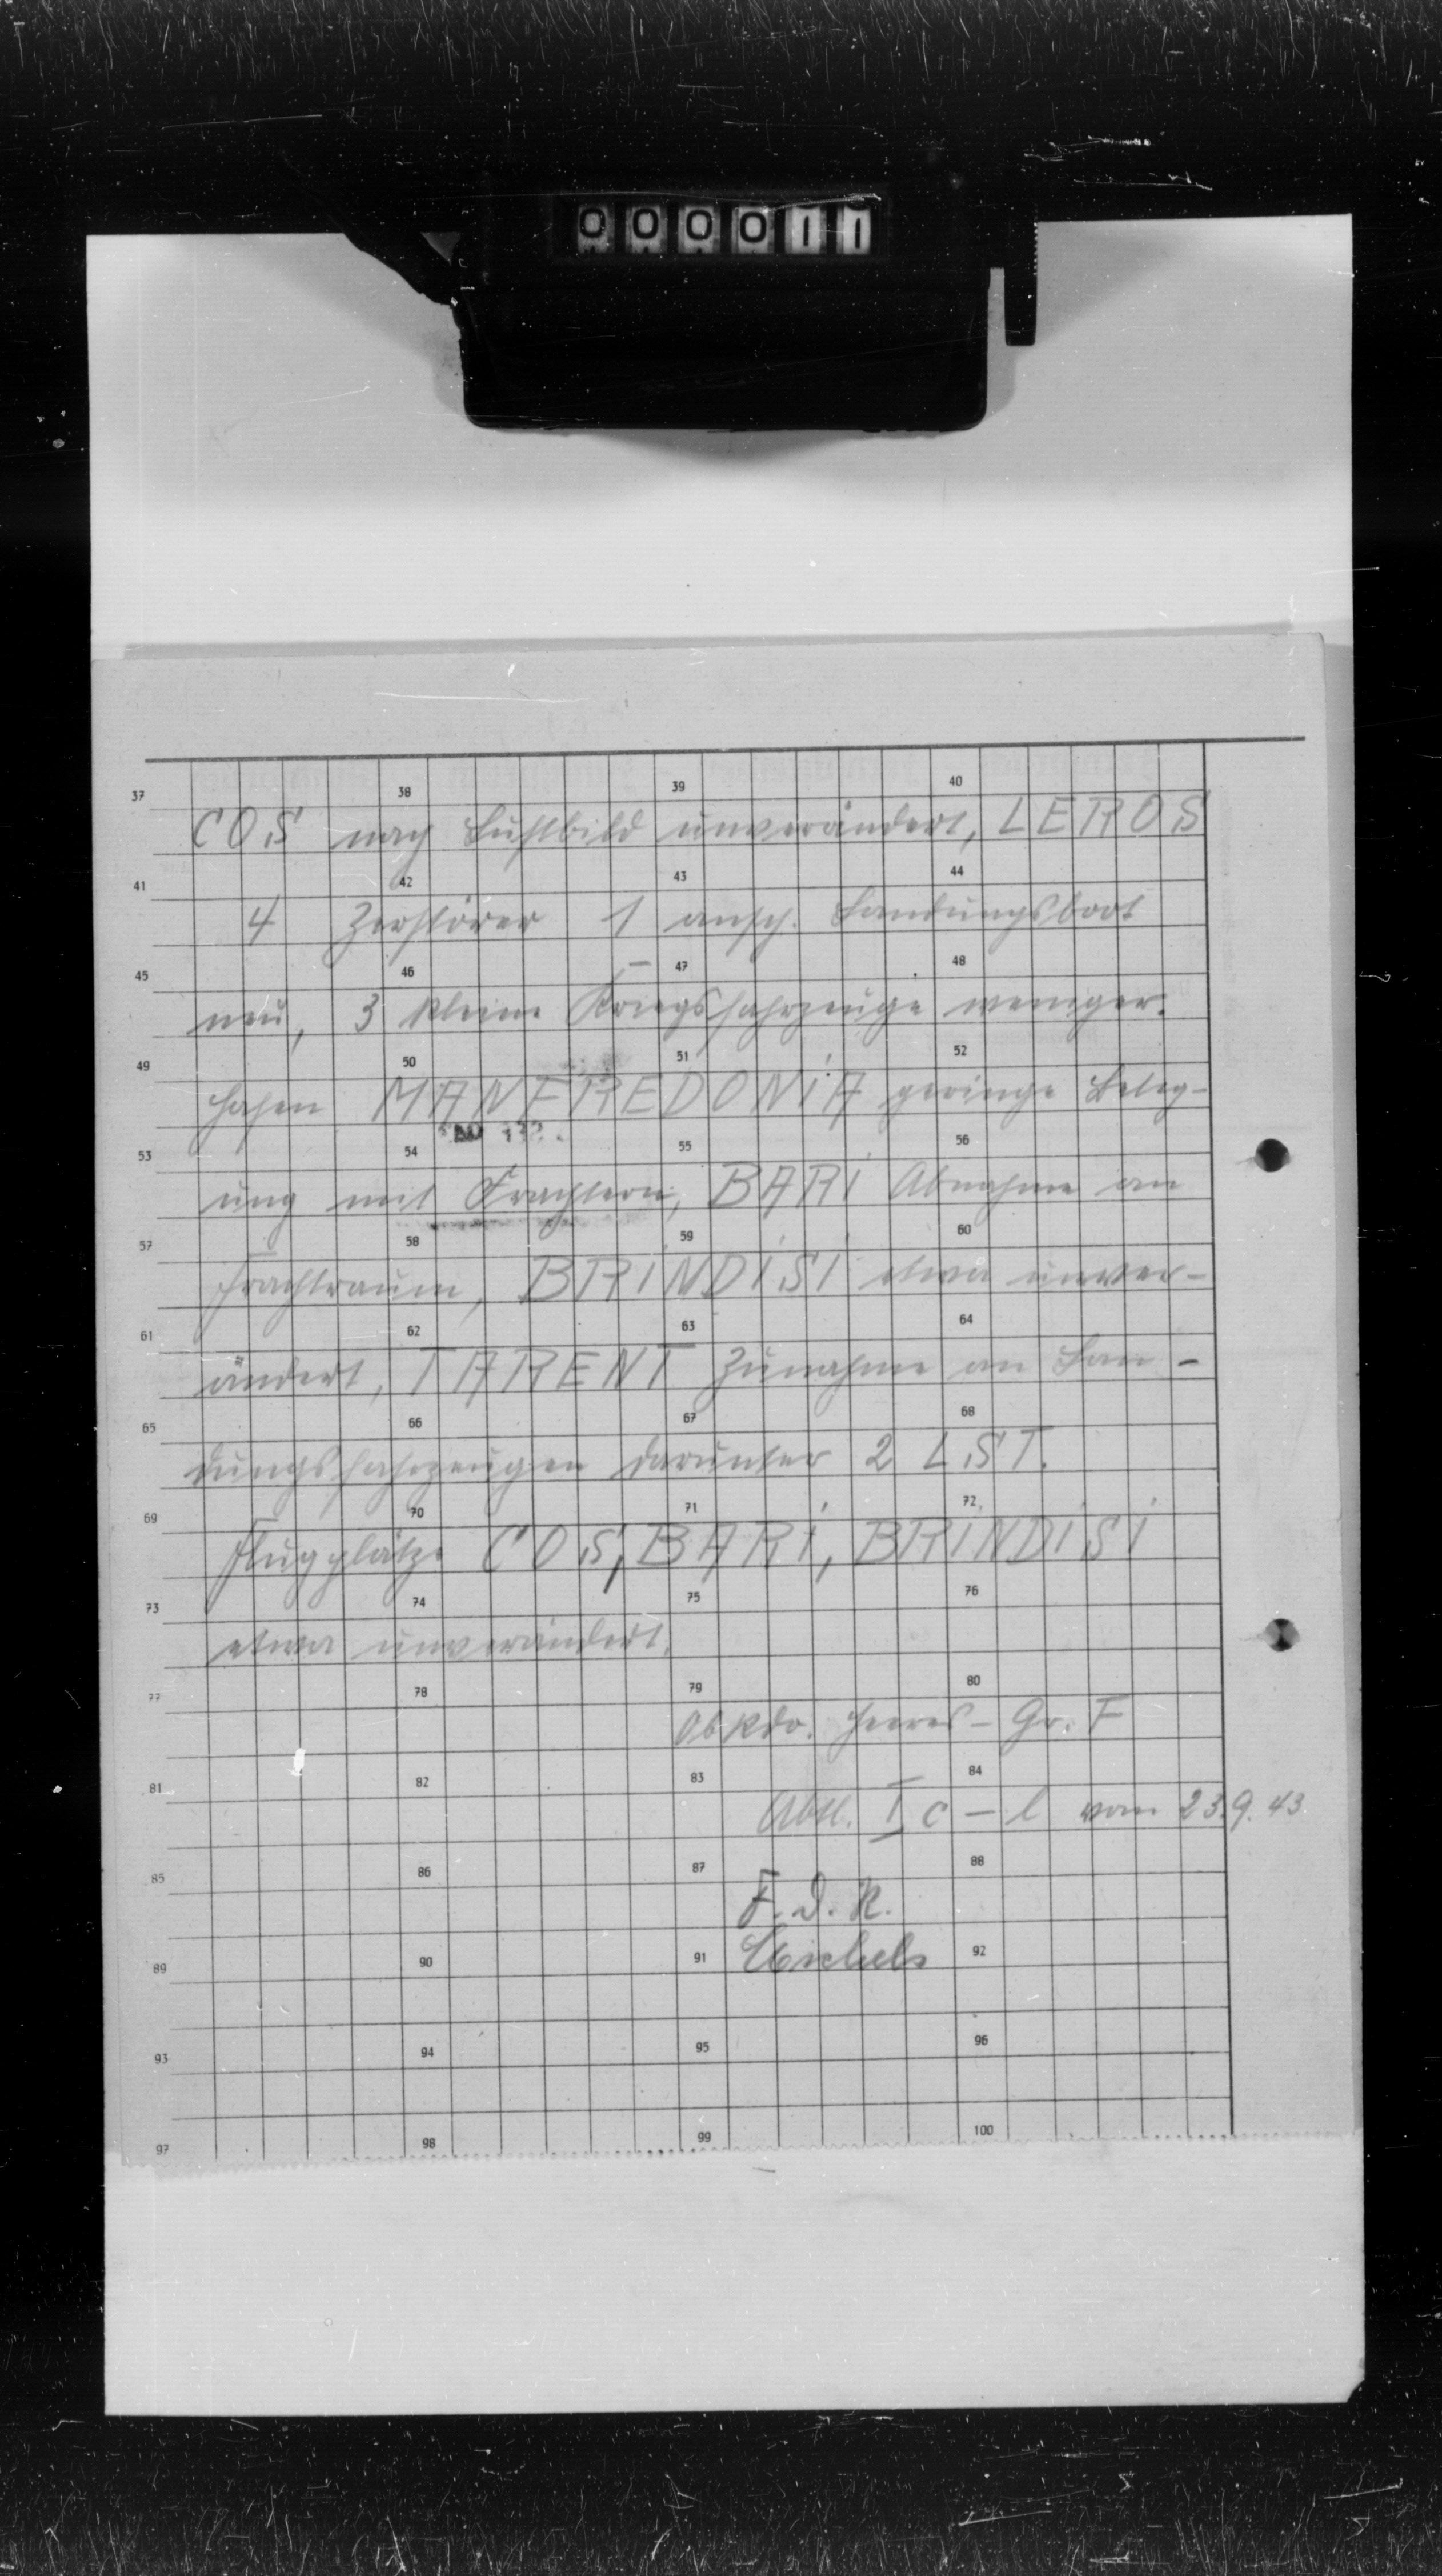 000011
37 38 39 40
COS nach Luftbild unverändert, LEROS
41 42 43 44
4 Zerstörer 1 ansch. Landungsboot
45 46 47 48
neu, 3 kleine Kriegsfahrzeuge weniger.
49 50 51 52
Hafen MANFREDONIA geringe Beleg-
53 54 55 56
ung mit Frachtern, BARI Abnahme an
57 58 59 60
Frachtraum, BRINDISI etwa unver-
61 62 63 64
ändert, TARENT Zunahme an Lan-
65 66 67 68
dungsfahrzeugen darunter 2 LST.
69 70 71 72
Flugplätze COS, BARI, BRINDISI
73 74 75 76
etwa unverändert.
77 78 79 80
Obkdo. Heeres-Gr. F
81 82 83 84
Abtl. Ic - l vom 23.9.43
85 86 87 88
F.d.R.
89 90 91 92
Michels
93 94 95 96
97 98 99 100